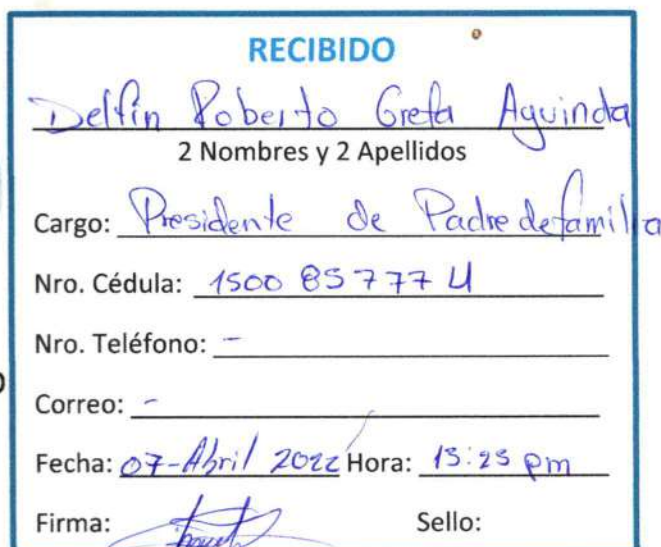 RECIBIDO
Delfín Roberto Grefa Aguinda
2 Nombres y 2 Apellidos
Cargo: Presidente de Padre de familia
Nro. Cédula: 1500 85777 4
Nro. Teléfono: -
Correo: -
Fecha: 07-Abril 2022 Hora: 13:25 pm
Firma: Sello: